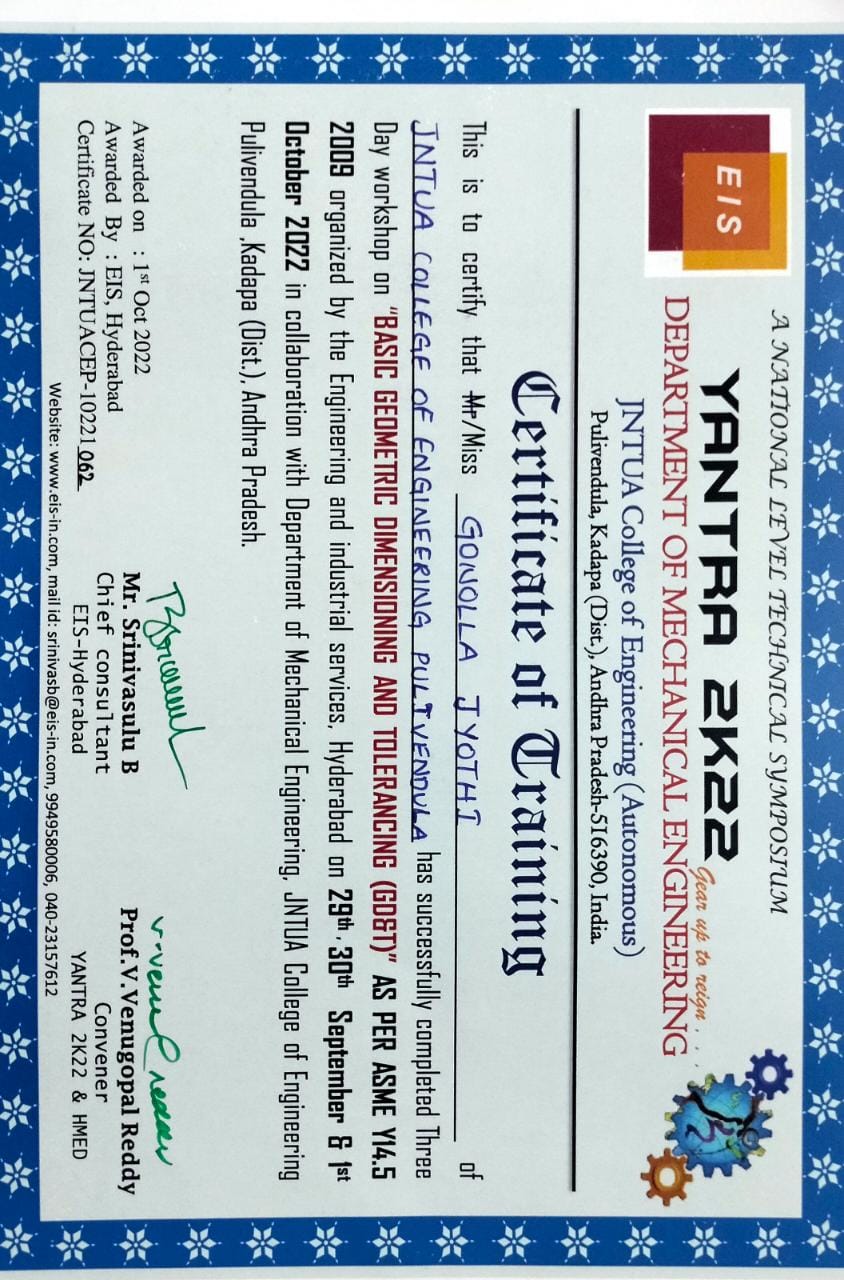 EIS
A NATIONAL LEVEL TECHNICAL SYMPOSIUM
YANTRA 2K22
Gear up to reign . . .
DEPARTMENT OF MECHANICAL ENGINEERING
JNTUA College of Engineering (Autonomous)
Pulivendula, Kadapa (Dist.), Andhra Pradesh-516390, India.
Certificate of Training
This is to certify that Mr/Miss GONOLLA JYOTHI of
JNTUA COLLEGE OF ENGINEERING PULIVENDULA has successfully completed Three
Day workshop on "BASIC GEOMETRIC DIMENSIONING AND TOLERANCING (GD&T)" AS PER ASME Y14.5
2009 organized by the Engineering and industrial services, Hyderabad on 29th, 30th September & 1st
October 2022 in collaboration with Department of Mechanical Engineering, JNTUA College of Engineering
Pulivendula ,Kadapa (Dist.), Andhra Pradesh.
V.Venu reddy
Awarded on : 1st Oct 2022
Awarded By : EIS, Hyderabad
Certificate NO: JNTUACEP-10221062
Mr. Srinivasulu B
Chief consultant
EIS-Hyderabad
Prof.V.Venugopal Reddy
Convener
YANTRA 2K22 & HMED
Website: www.eis-in.com, mail id: srinivasb@eis-in.com, 9949580006, 040-23157612